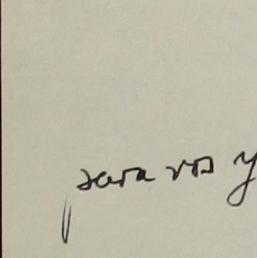 para vos y